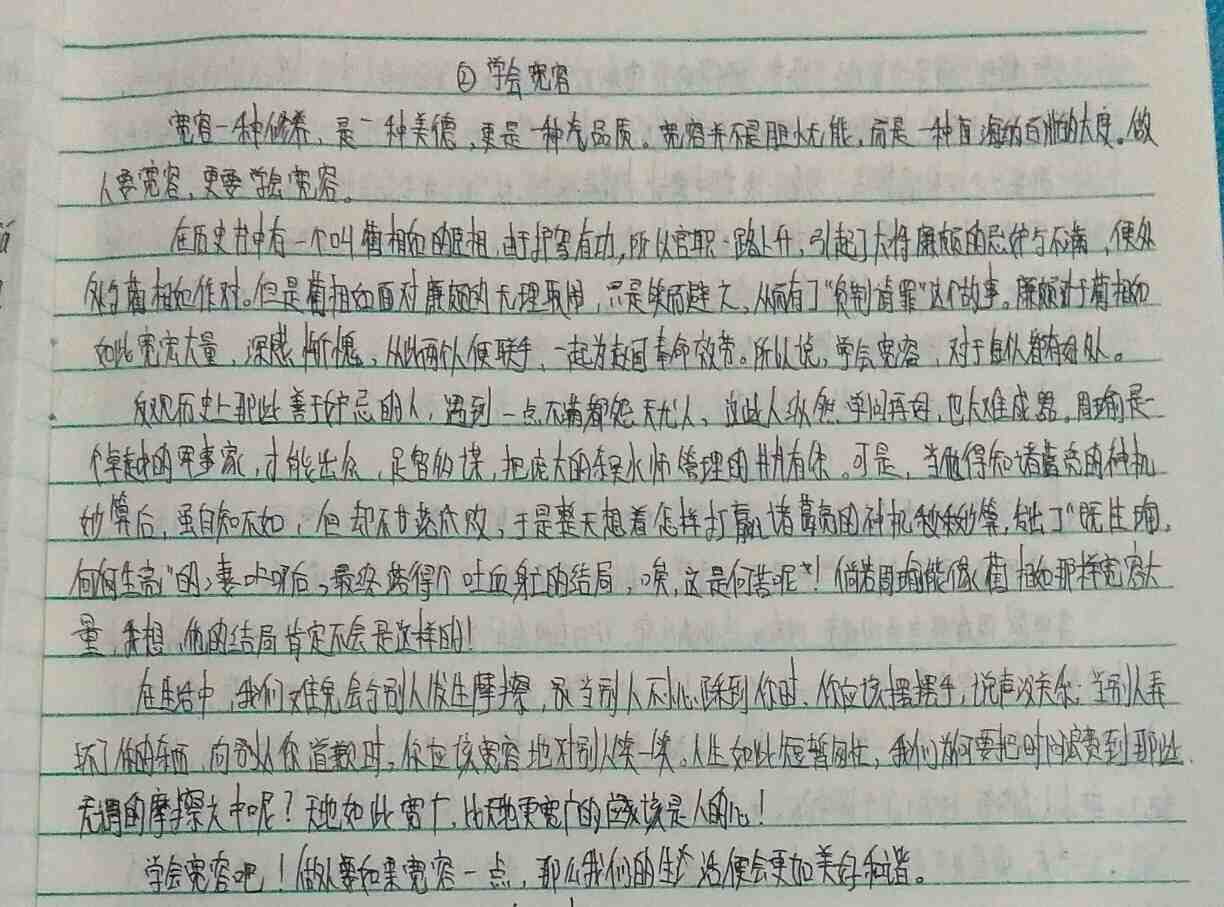 ② 学会宽容
宽容一种修养，是一种美德，更是一种气品质。宽容并不是胆小无能，而是一种有海纳百川的大度。做
人要宽容，更要学会宽容。
在历史书中有一个叫蔺相如的臣相，由于护驾有功，所以官职一路上升，引起了大将廉颇的忌妒与不满，便处
处与蔺相如作对。但是蔺相如面对廉颇的无理取闹，只是笑而避之，从而有了“负荆请罪”这个故事。廉颇对于蔺相如
如此宽宏大量，深感惭愧，从此两个人便联手，一起为赵国奉命效劳。所以说，学会宽容，对于自他人都有好处。
反观历史上那些善于妒忌的人，遇到一点不满都怨天尤人，这些人纵然学问再好，也大难成器。周瑜是一
个卓越的军事家，才能出众，足智多谋，把庞大的水师管理的井井有条。可是，当他得知诸葛亮的神机
妙算后，虽自知不如，但却不甘落败，于是整天想着怎样打赢诸葛亮的神机妙算，发出了“既生瑜，
何生亮”的凄叫后，最终落得个吐血身亡的结局，唉，这是何苦呢！倘若周瑜能像蔺相如那样宽宏大
量，我想，他的结局肯定不会是这样的！
在生活中，我们难免会与别人发生摩擦，当别人不小心踩到你时，你应该摆摆手，说声没关系；当别人弄
坏了你的东西，向你道歉时，你应该宽容地对别人笑一笑。人生如此短暂匆忙，我们为何要把时间浪费到那些
无谓的摩擦之中呢？天地如此宽广，比天地更宽广的应该是人的心！
学会宽容吧！做人要如果宽容一点，那么我们的生活便会更加美好和谐。